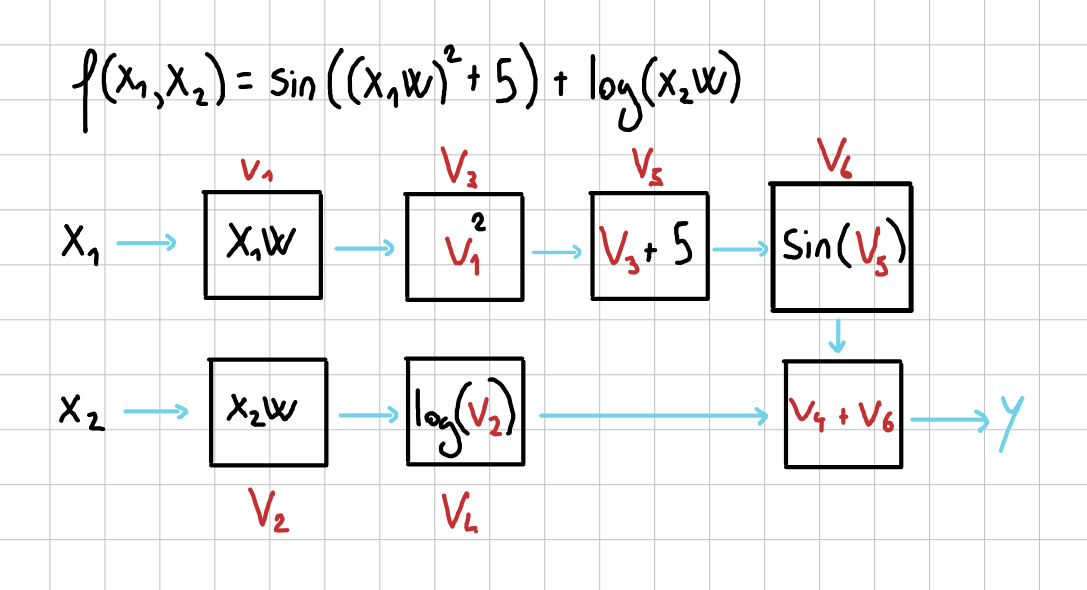 f(x₁,x₂) = sin((x₁w)² + 5) + log(x₂w)
V₁ V₃ V₅ V₆
x₁ → x₁w → V₁² → V₃ + 5 → sin(V₅)
↓
x₂ → x₂w → log(V₂) → V₄ + V₆ → y
V₂ V₄